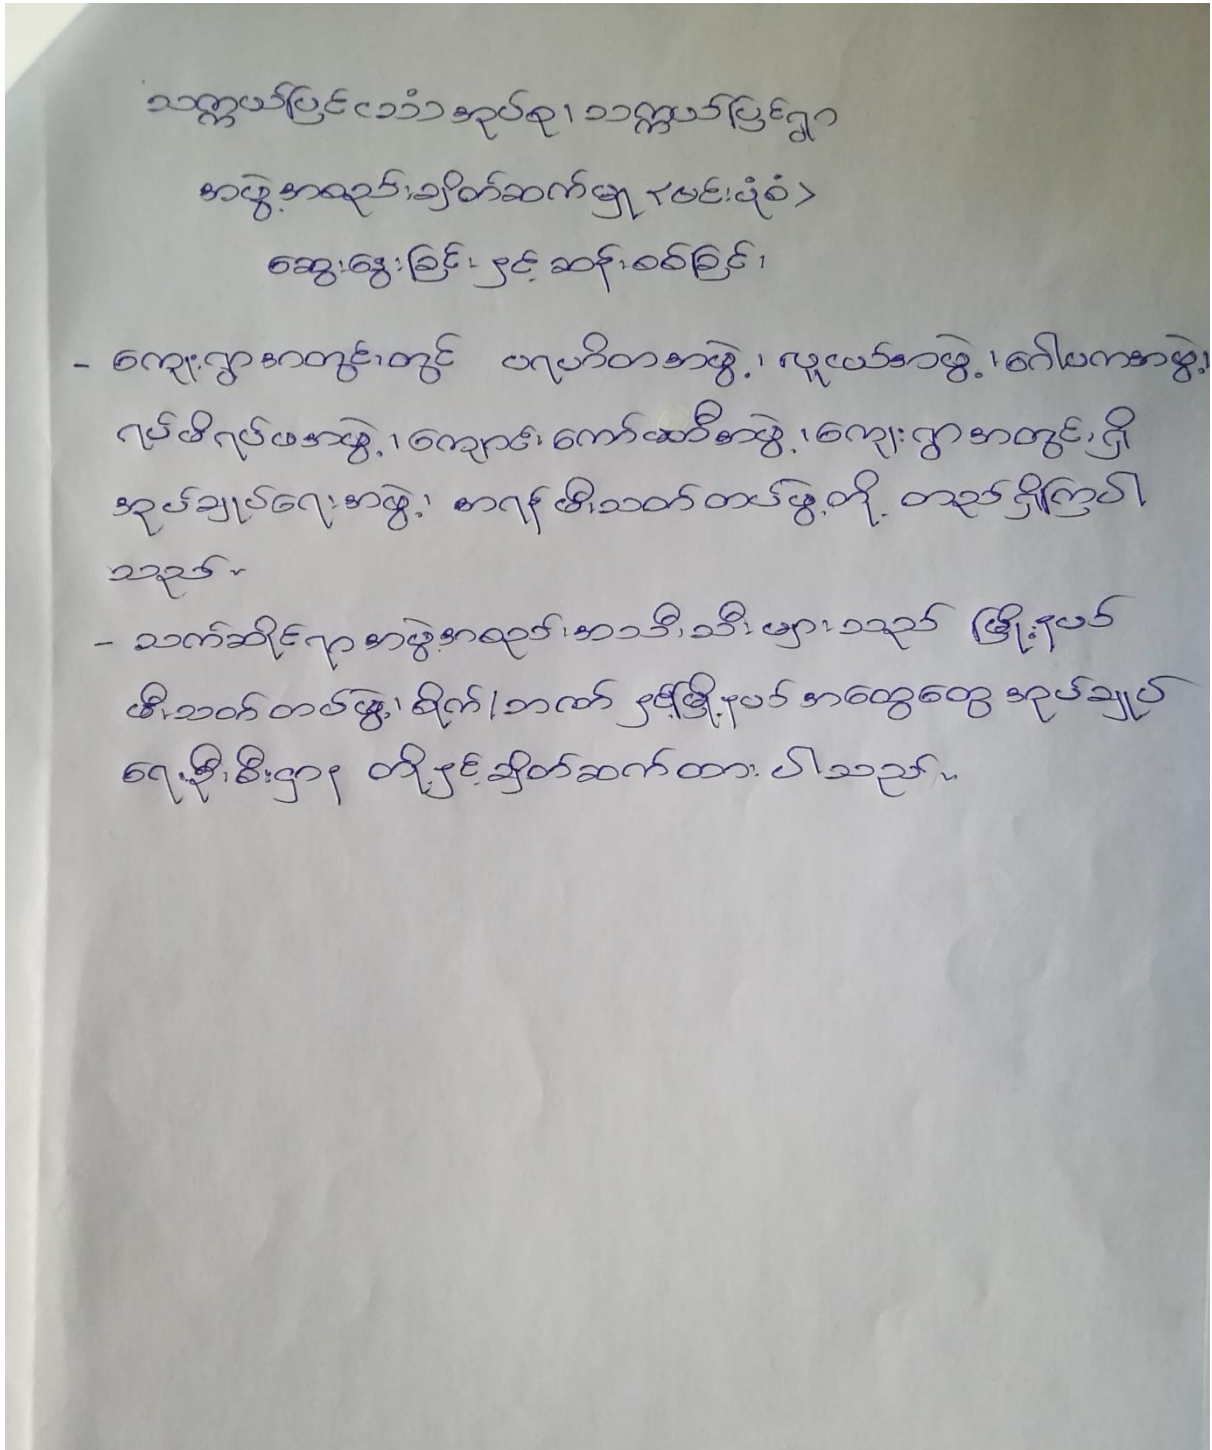 သက္ကယ်ပြင် အုပ်စု၊ သက္ကယ်ပြင်ရွာ
အဖွဲ့အစည်းချိတ်ဆက်မှု <ဗင်းပုံစံ>
ဆွေးနွေးခြင်းနှင့် ဆန်းစစ်ခြင်း
- ကျေးရွာအတွင်းတွင် ပရဟိတအဖွဲ့၊ လူငယ်အဖွဲ့၊ ဂေါပကအဖွဲ့၊
ရပ်မိရပ်ဖအဖွဲ့၊ ကျောင်းကော်မတီအဖွဲ့၊ ကျေးရွာအတွင်းရှိ
အုပ်ချုပ်ရေးအဖွဲ့၊ အရန်မီးသတ်တပ်ဖွဲ့တို့ တည်ရှိကြပါ
သည်။
- သက်ဆိုင်ရာအဖွဲ့အစည်းအသီးသီးများသည် မြို့နယ်
မီးသတ်တပ်ဖွဲ့၊ စိုက်/ဘဏ် နှင့်မြို့နယ် အထွေထွေ အုပ်ချုပ်
ရေးဦးစီးဌာန တို့နှင့်ချိတ်ဆက်ထားပါသည်။